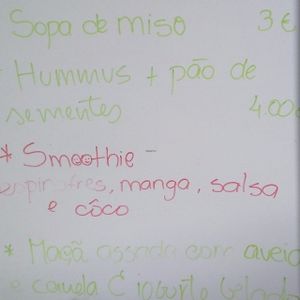 Sopa de miso 3€
Hummus + pão de
sementes 4.00€
* Smoothie -
espinafres, manga, salsa
e côco
* Maçã assada com aveia
e canela C iogurte gelado